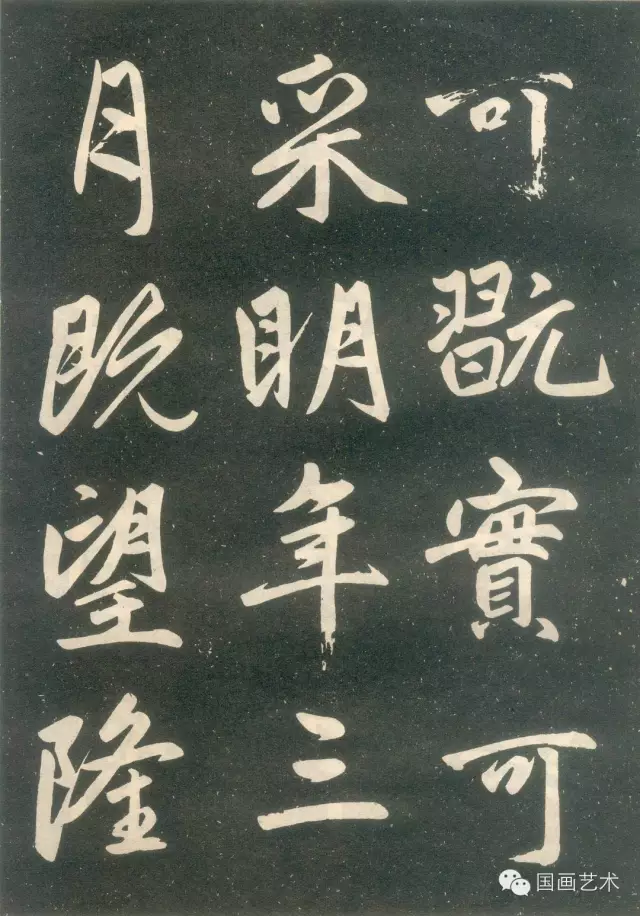 可翫實可
采明年三
月既望隆
国画艺术